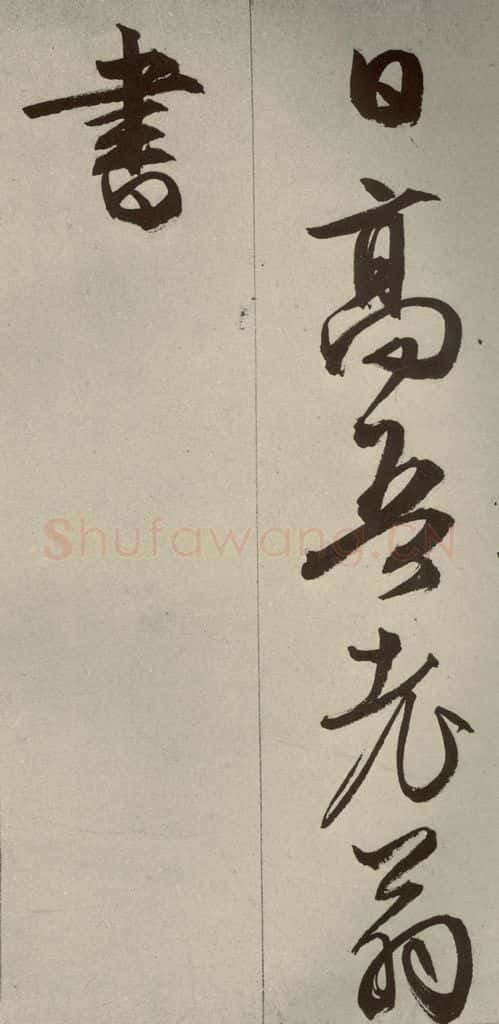 日高吾老翁
書
Shufawang.CN